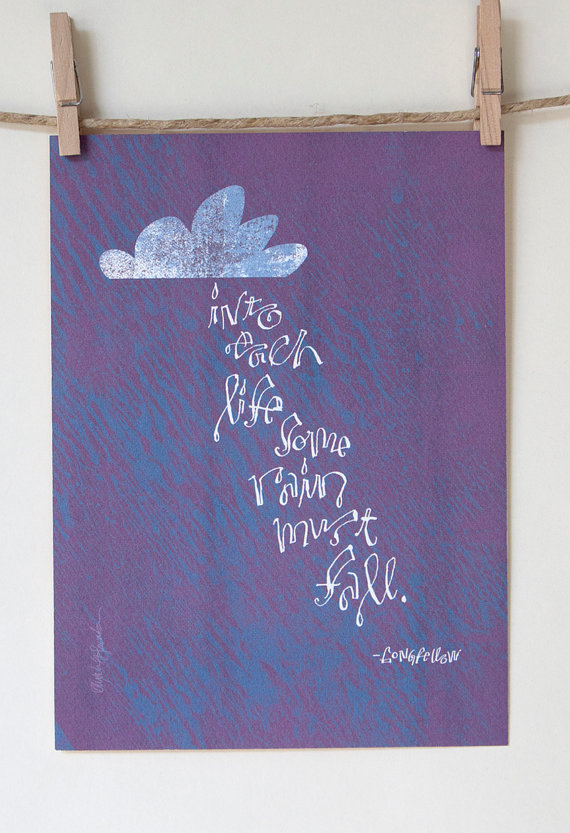 into
each
life
some
rain
must
fall.
-Longfellow